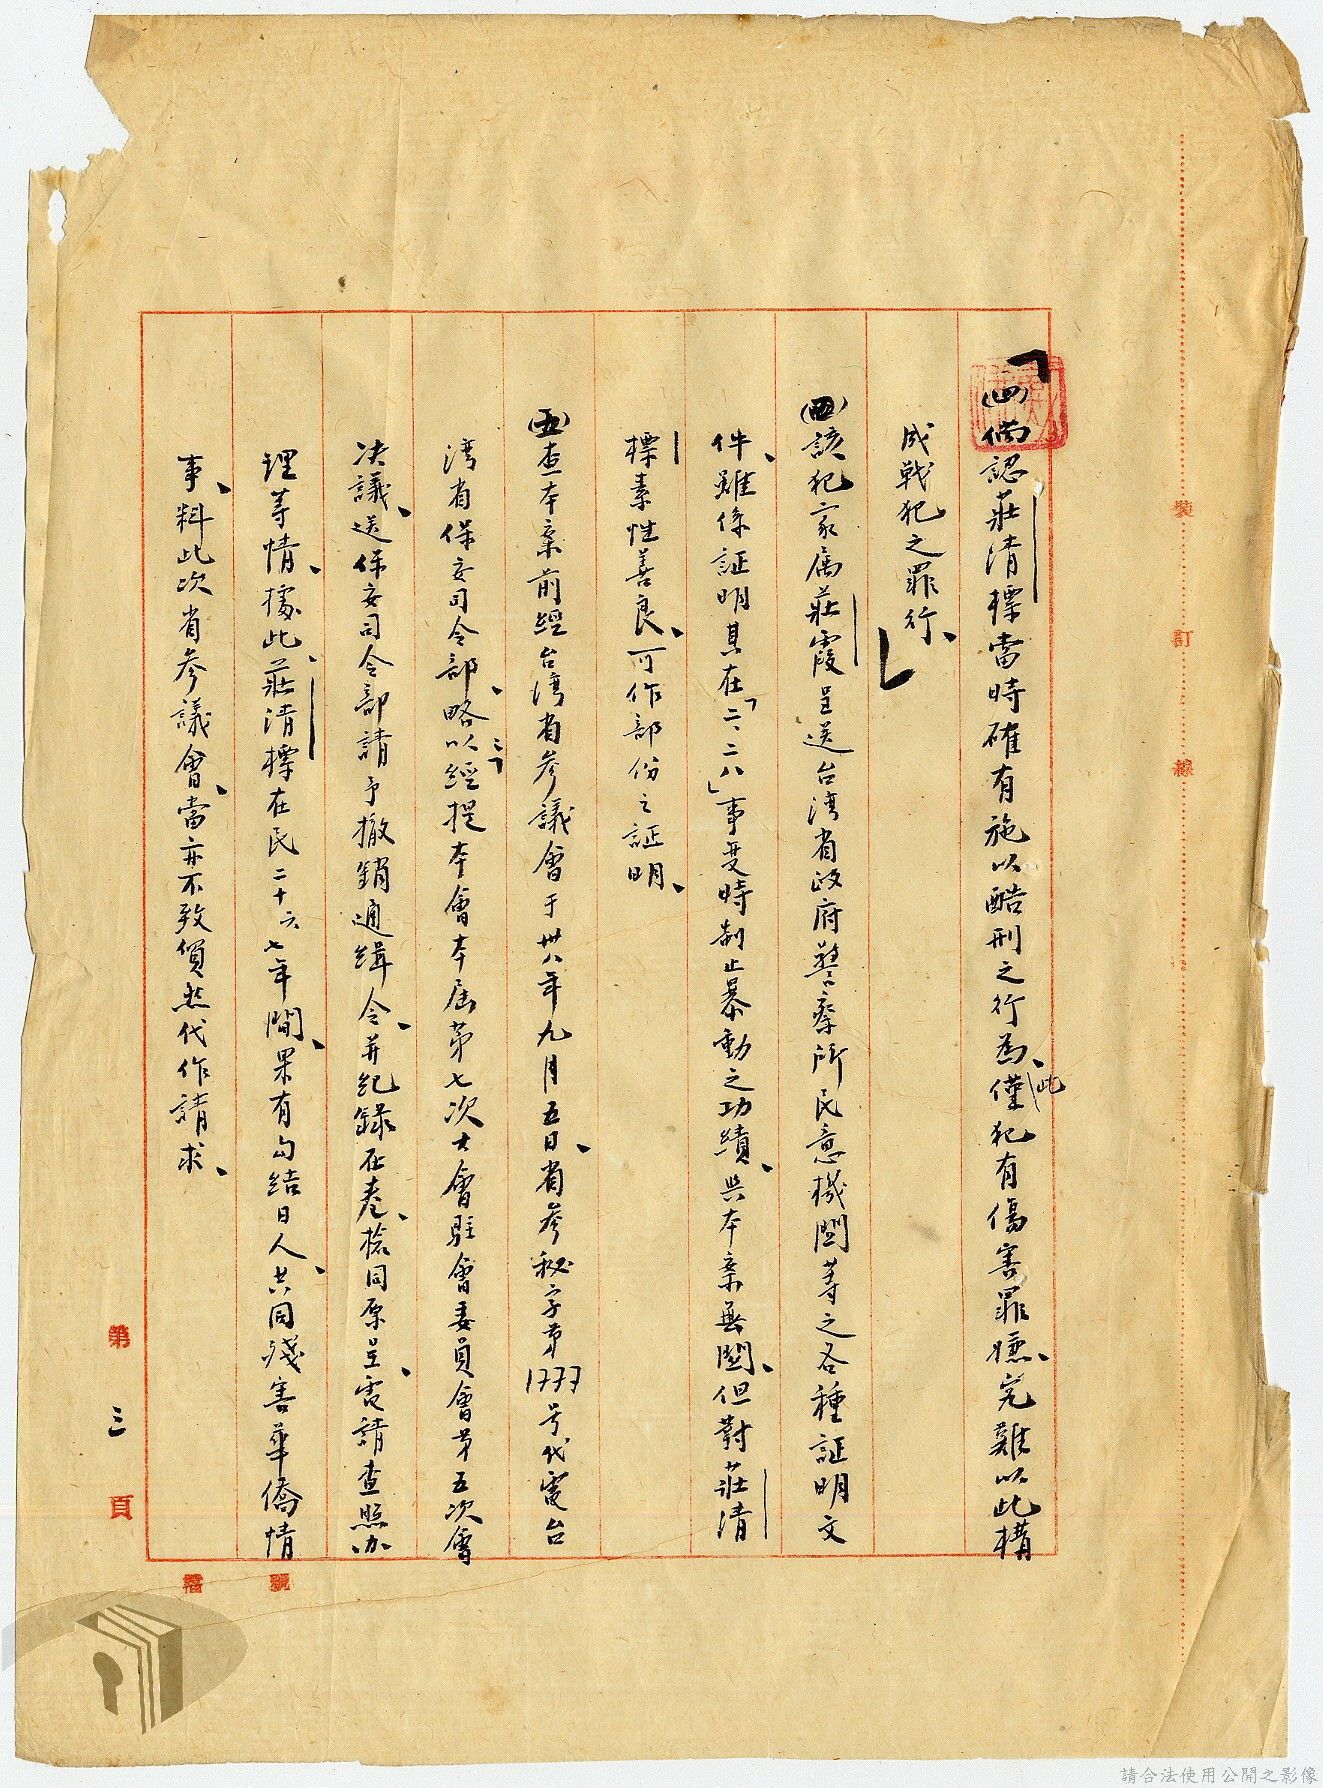 「(四)倘認莊清標當時確有施以酷刑之行為、僅此犯有傷害罪嫌、究難以此構
成戰犯之罪行、」
(四)該犯家属莊霞呈送台湾省政府警察所民意機関等之各種証明文
件、雖係証明其在「二、二八」事变時制止暴動之功績、與本案無関、但對莊清
標素性善良、可作部份之証明、
(五)查本案前經台湾省参議會于卅八年九月五日、省参秘字第1777号代電台
湾省保安司令部、略以「經提本會本屆第七次大會駐會委員會第五次會
决議、送保安司令部請予撤銷通緝令、并紀錄在卷、檢同原呈、電請查照办
理等情、據此、莊清標在民二十六、七年間、果有勾結日人、共同殘害華僑情
事、料此次省参議會、當亦不致貿然代作請求、
第三頁
裝
訂
線
檔
號
請合法使用公開之影像